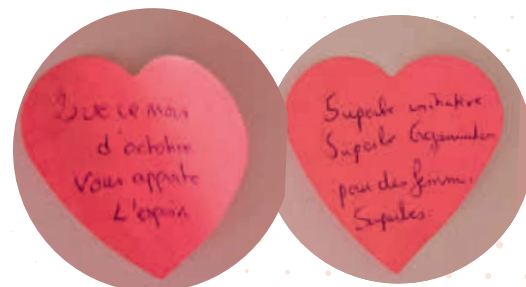 Que ce mois
d'octobre
Vous apporte
L'espoir
Superbe initiative
Superbe Organisation
pour des femmes
Superbes.